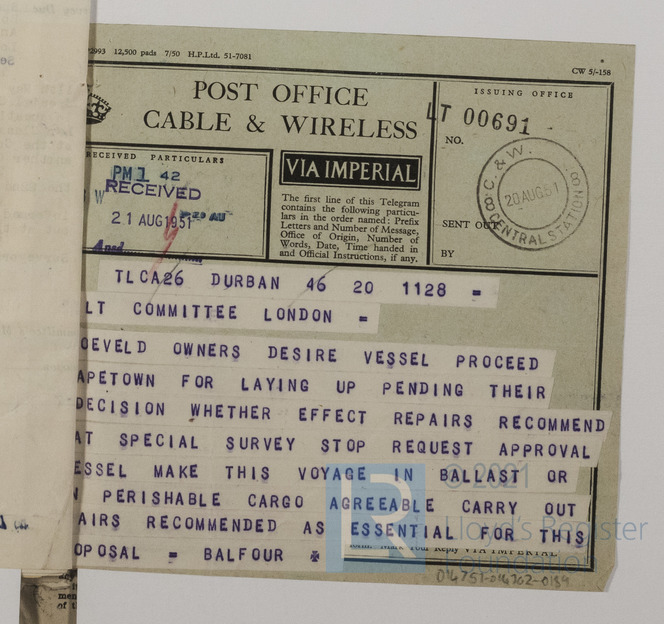 2993 12,500 pads 7/50 H.P.Ltd. 51-7081
CW 5/-158
POST OFFICE
CABLE & WIRELESS
ISSUING OFFICE
LT 00691
NO.
RECEIVED PARTICULARS
PM1 42
W
RECEIVED
21 AUG 1951
20 AU
VIA IMPERIAL
The first line of this Telegram
contains the following particu-
lars in the order named: Prefix
Letters and Number of Message,
Office of Origin, Number of
Words, Date, Time handed in
and Official Instructions, if any.
C. & W.
20 AUG 51
CENTRAL STATION
SENT OUT
BY
TLCA26 DURBAN 46 20 1128 =
LT COMMITTEE LONDON =
OEVELD OWNERS DESIRE VESSEL PROCEED
APETOWN FOR LAYING UP PENDING THEIR
DECISION WHETHER EFFECT REPAIRS RECOMMEND
AT SPECIAL SURVEY STOP REQUEST APPROVAL
ESSEL MAKE THIS VOYAGE IN BALLAST OR
N PERISHABLE CARGO AGREEABLE CARRY OUT
AIRS RECOMMENDED AS ESSENTIAL FOR THIS
OPOSAL = BALFOUR *
Your Reply VIA IMPERIAL
© 2021
Lloyd's Register
Foundation
014757-014762-0189